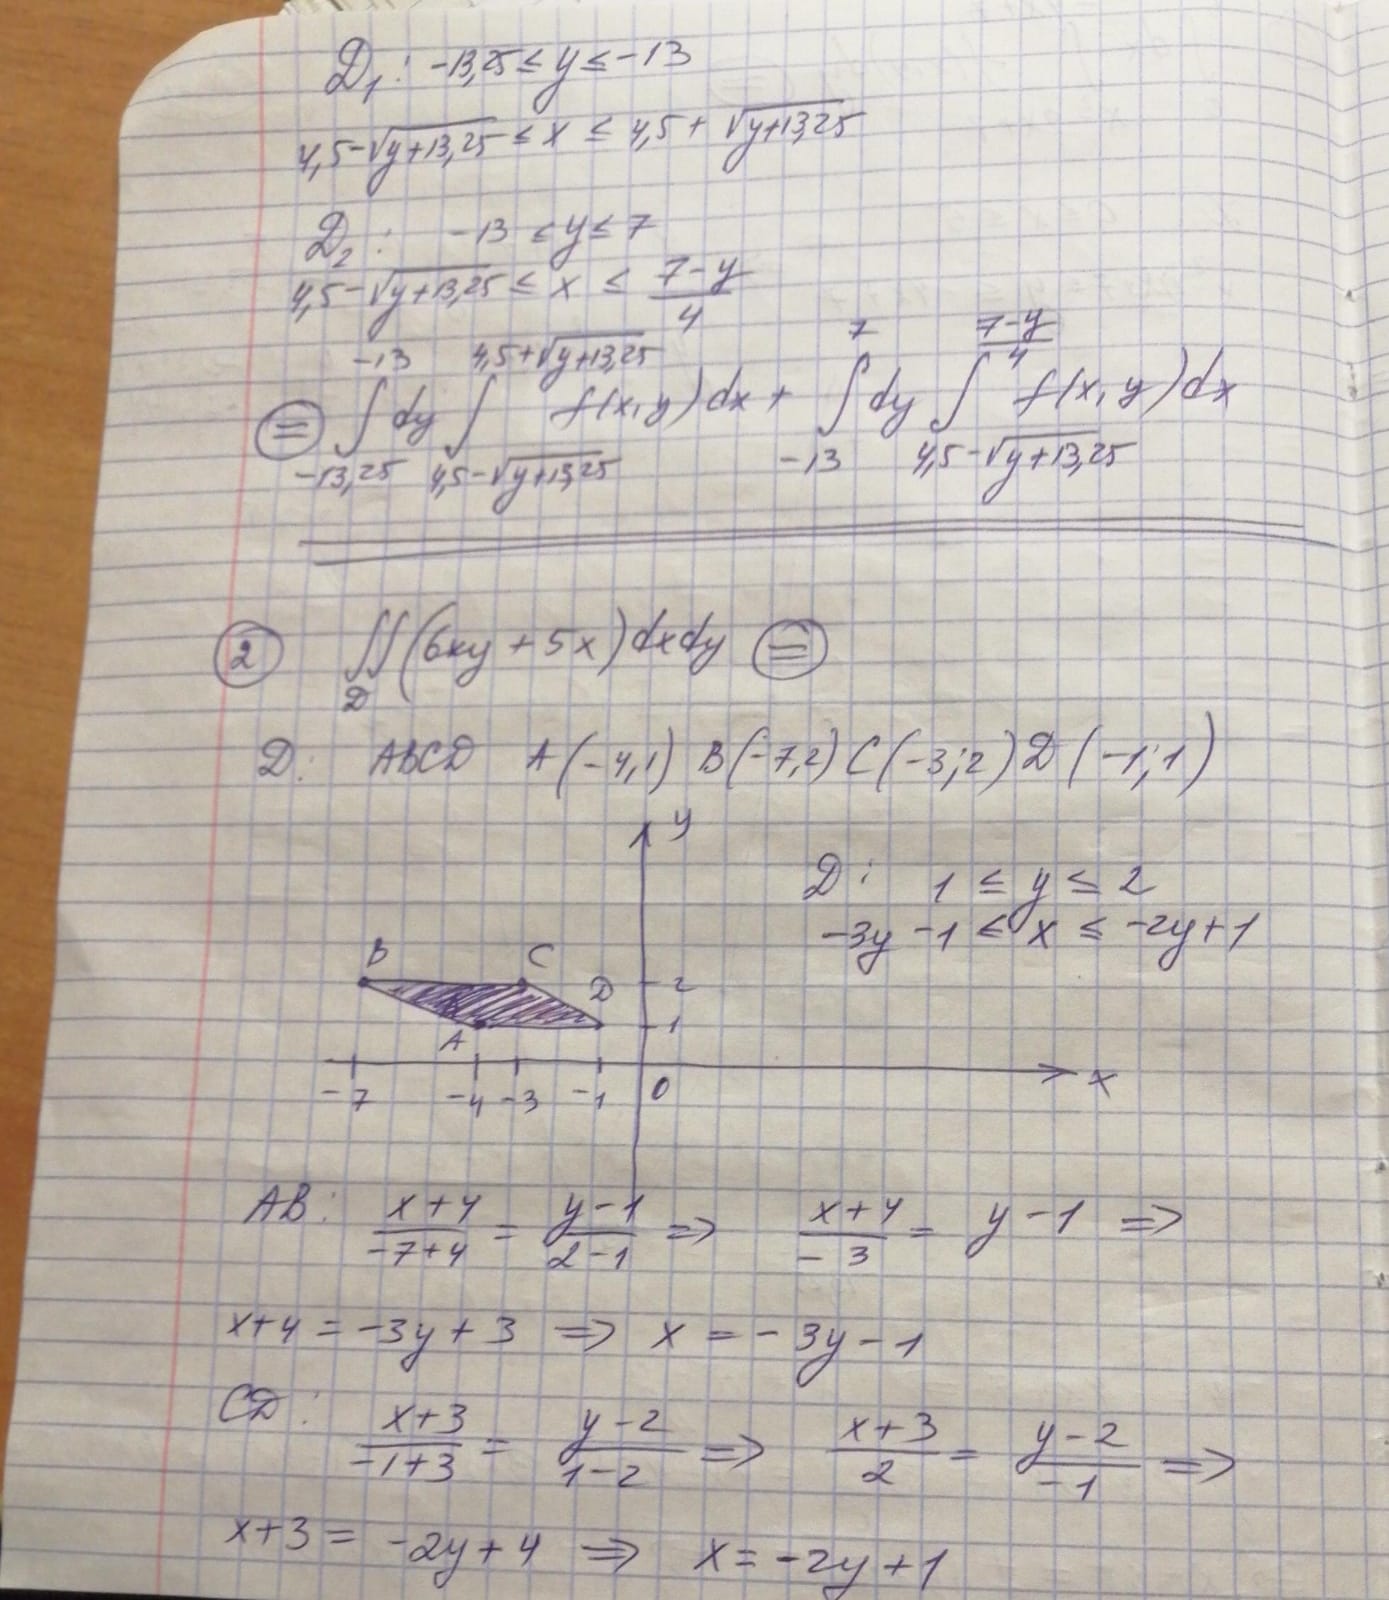 D₁: -13,25 ≤ y ≤ -13
4,5-√(y+13,25) ≤ x ≤ 4,5+√(y+13,25)
D₂: -13 ≤ y ≤ 7
4,5-√(y+13,25) ≤ x ≤ (7-y)/4
(=) ∫_{-13,25}^{-13} dy ∫_{4,5-√(y+13,25)}^{4,5+√(y+13,25)} f(x,y)dx + ∫_{-13}^{7} dy ∫_{4,5-√(y+13,25)}^{(7-y)/4} f(x,y)dx
(2) ∬_D (6xy+5x)dxdy (=)
D: ABCD A(-4,1) B(-7,2) C(-3;2) D(-1;1)
y
D: 1 ≤ y ≤ 2
-3y-1 ≤ x ≤ -2y+1
B C D 2
A 1
-7 -4 -3 -1 0 x
AB: (x+4)/(-7+4) = (y-1)/(2-1) => (x+4)/(-3) = y-1 =>
x+4 = -3y+3 => x = -3y-1
CD: (x+3)/(-1+3) = (y-2)/(1-2) => (x+3)/2 = (y-2)/(-1) =>
x+3 = -2y+4 => x = -2y+1